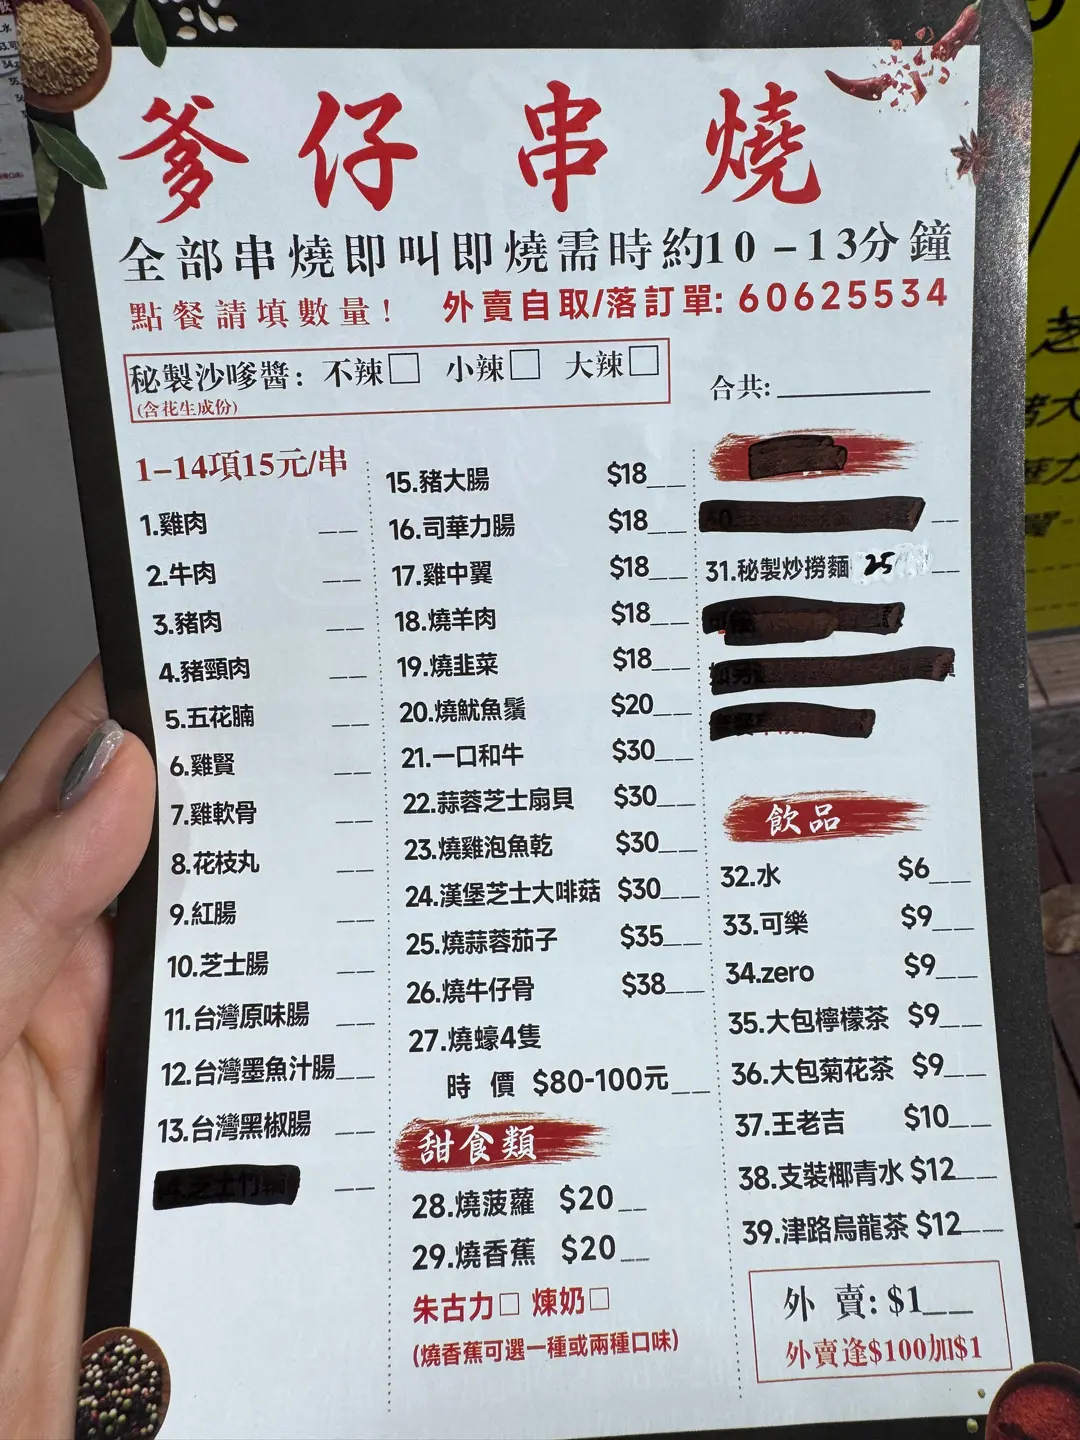 爹仔串燒
全部串燒即叫即燒需時約10-13分鐘
點餐請填數量! 外賣自取/落訂單: 60625534
秘製沙嗲醬: 不辣□ 小辣□ 大辣□
(含花生成份)
合共:________
1-14項15元/串
1.雞肉 __
2.牛肉 __
3.豬肉 __
4.豬頸肉 __
5.五花腩 __
6.雞腎 __
7.雞軟骨 __
8.花枝丸 __
9.紅腸 __
10.芝士腸 __
11.台灣原味腸 __
12.台灣墨魚汁腸__
13.台灣黑椒腸 __
15.豬大腸 $18__
16.司華力腸 $18__
17.雞中翼 $18__
18.燒羊肉 $18__
19.燒韭菜 $18__
20.燒魷魚鬚 $20__
21.一口和牛 $30__
22.蒜蓉芝士扇貝 $30__
23.燒雞泡魚乾 $30__
24.漢堡芝士大啡菇 $30__
25.燒蒜蓉茄子 $35__
26.燒牛仔骨 $38__
27.燒蠔4隻
時 價 $80-100元__
甜食類
28.燒菠蘿 $20__
29.燒香蕉 $20__
朱古力□ 煉奶□
(燒香蕉可選一種或兩種口味)
31.秘製炒撈麵 25 __
飲品
32.水 $6__
33.可樂 $9__
34.zero $9__
35.大包檸檬茶 $9__
36.大包菊花茶 $9__
37.王老吉 $10__
38.支裝椰青水 $12__
39.津路烏龍茶 $12__
外 賣: $1__
外賣逢$100加$1